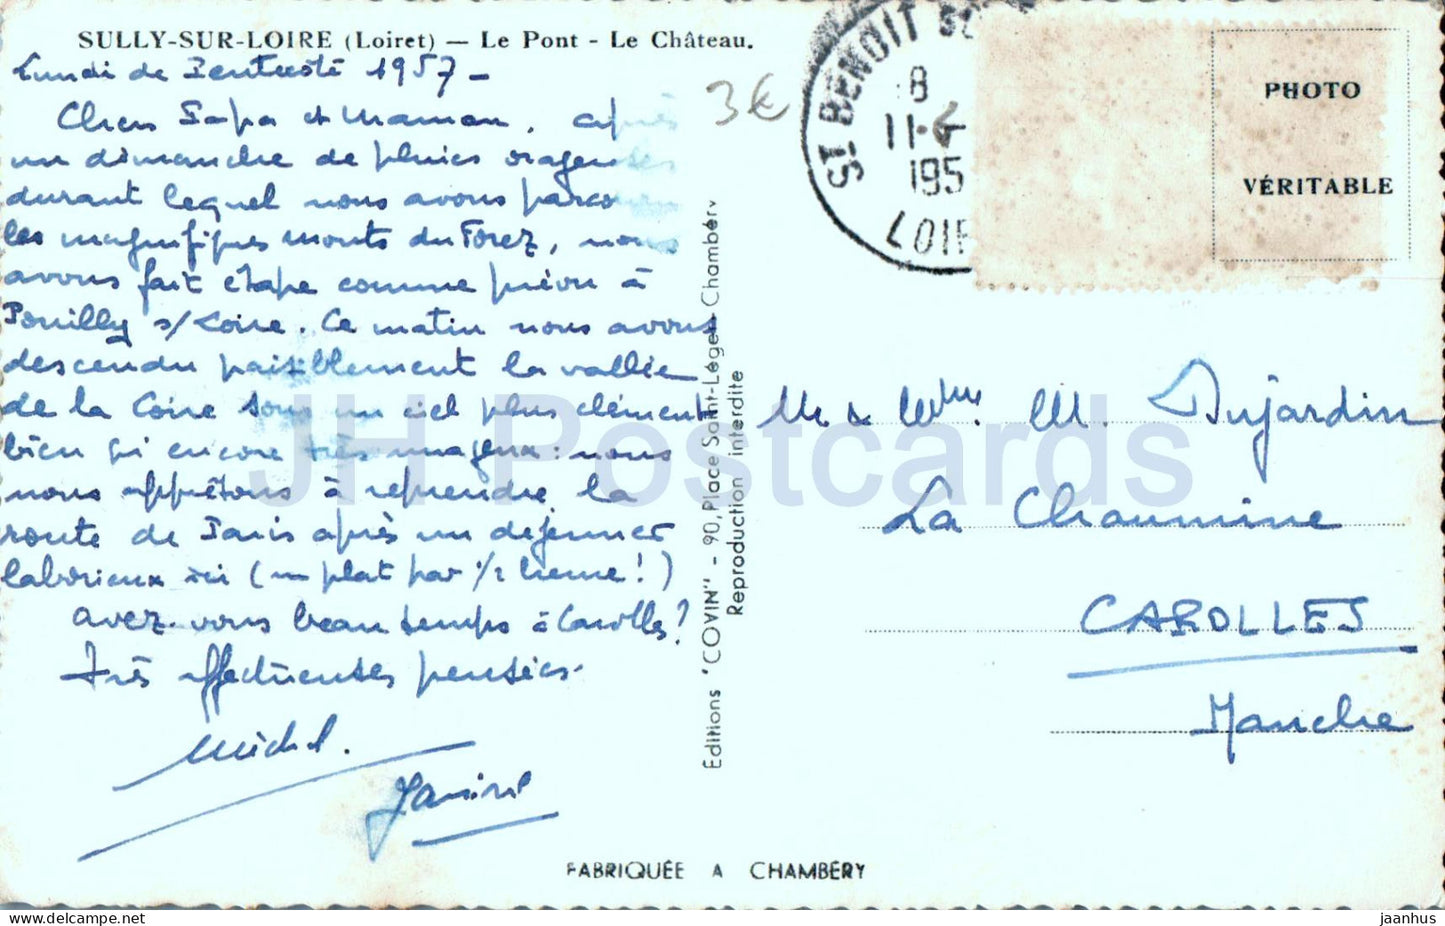 SULLY-SUR-LOIRE (Loiret) — Le Pont - Le Château.
Lundi de Pentecôté 1957 -
3€
Chers Papa et Maman, après
un dimanche de pluies orageuses
durant lequel nous avons parcouru
les magnifiques monts du Forez, nous
avons fait étape comme prévu à
Pouilly s/Loire. Ce matin nous avons
descendu paisiblement la vallée
de la Loire sous un ciel plus clément
bien qu'encore très nuageux : nous
nous apprêtons à reprendre la
route de Paris après un déjeuner
laborieux ici (un plat par 1/2 heure !)
Avez-vous beau temps à Carolles ?
Très affectueuses pensées.
Michel.
Editions "COVIN" - 90, Place Saint-Léger - Chambéry
Reproduction interdite
ST BENOIT SU
18
11-6
195
LOIR
PHOTO
VÉRITABLE
Mr & Mme M. Dujardin
La Chaumine
CAROLLES
Manche
FABRIQUÉE A CHAMBÉRY
JH Postcards
delcampe.net
jaanhus